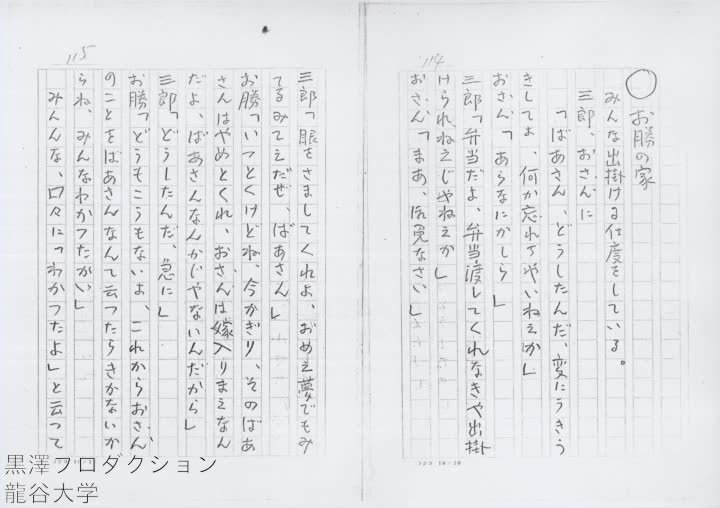 114
○ お勝の家
みんな出掛ける仕度をしている。
三郎、おさんに
「ばあさん、どうしたんだ、変にうきう
きしてよ、何か忘れちやいねえか」
おさん「あらなにかしら」
三郎「弁当だよ、弁当渡してくれなきや出掛
けられねえじやねえか」
おさん「まあ、御免なさい」
115
三郎「眼をさましてくれよ、おめえ夢でもみ
てるみてえだぜ、ばあさん」
お勝「いつとくけどね、今かぎり、そのばあ
さんはやめとくれ、おさんは嫁入りまえなん
だよ、ばあさんなんかじやないんだから」
三郎「どうしたんだ、急に」
お勝「どうもこうもないよ、これからおさん
のことをばあさんなんて云つたらきかないか
らね、みんなわかつたかい」
みんな、口々に「わかつたよ」と云つて
黒澤プロダクション
龍谷大学